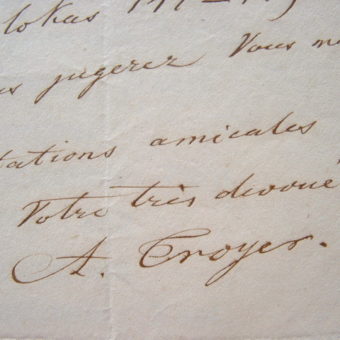 lokas 147-149
jugerez Vous
tations amicales
Votre très devoué
A. Troyer.